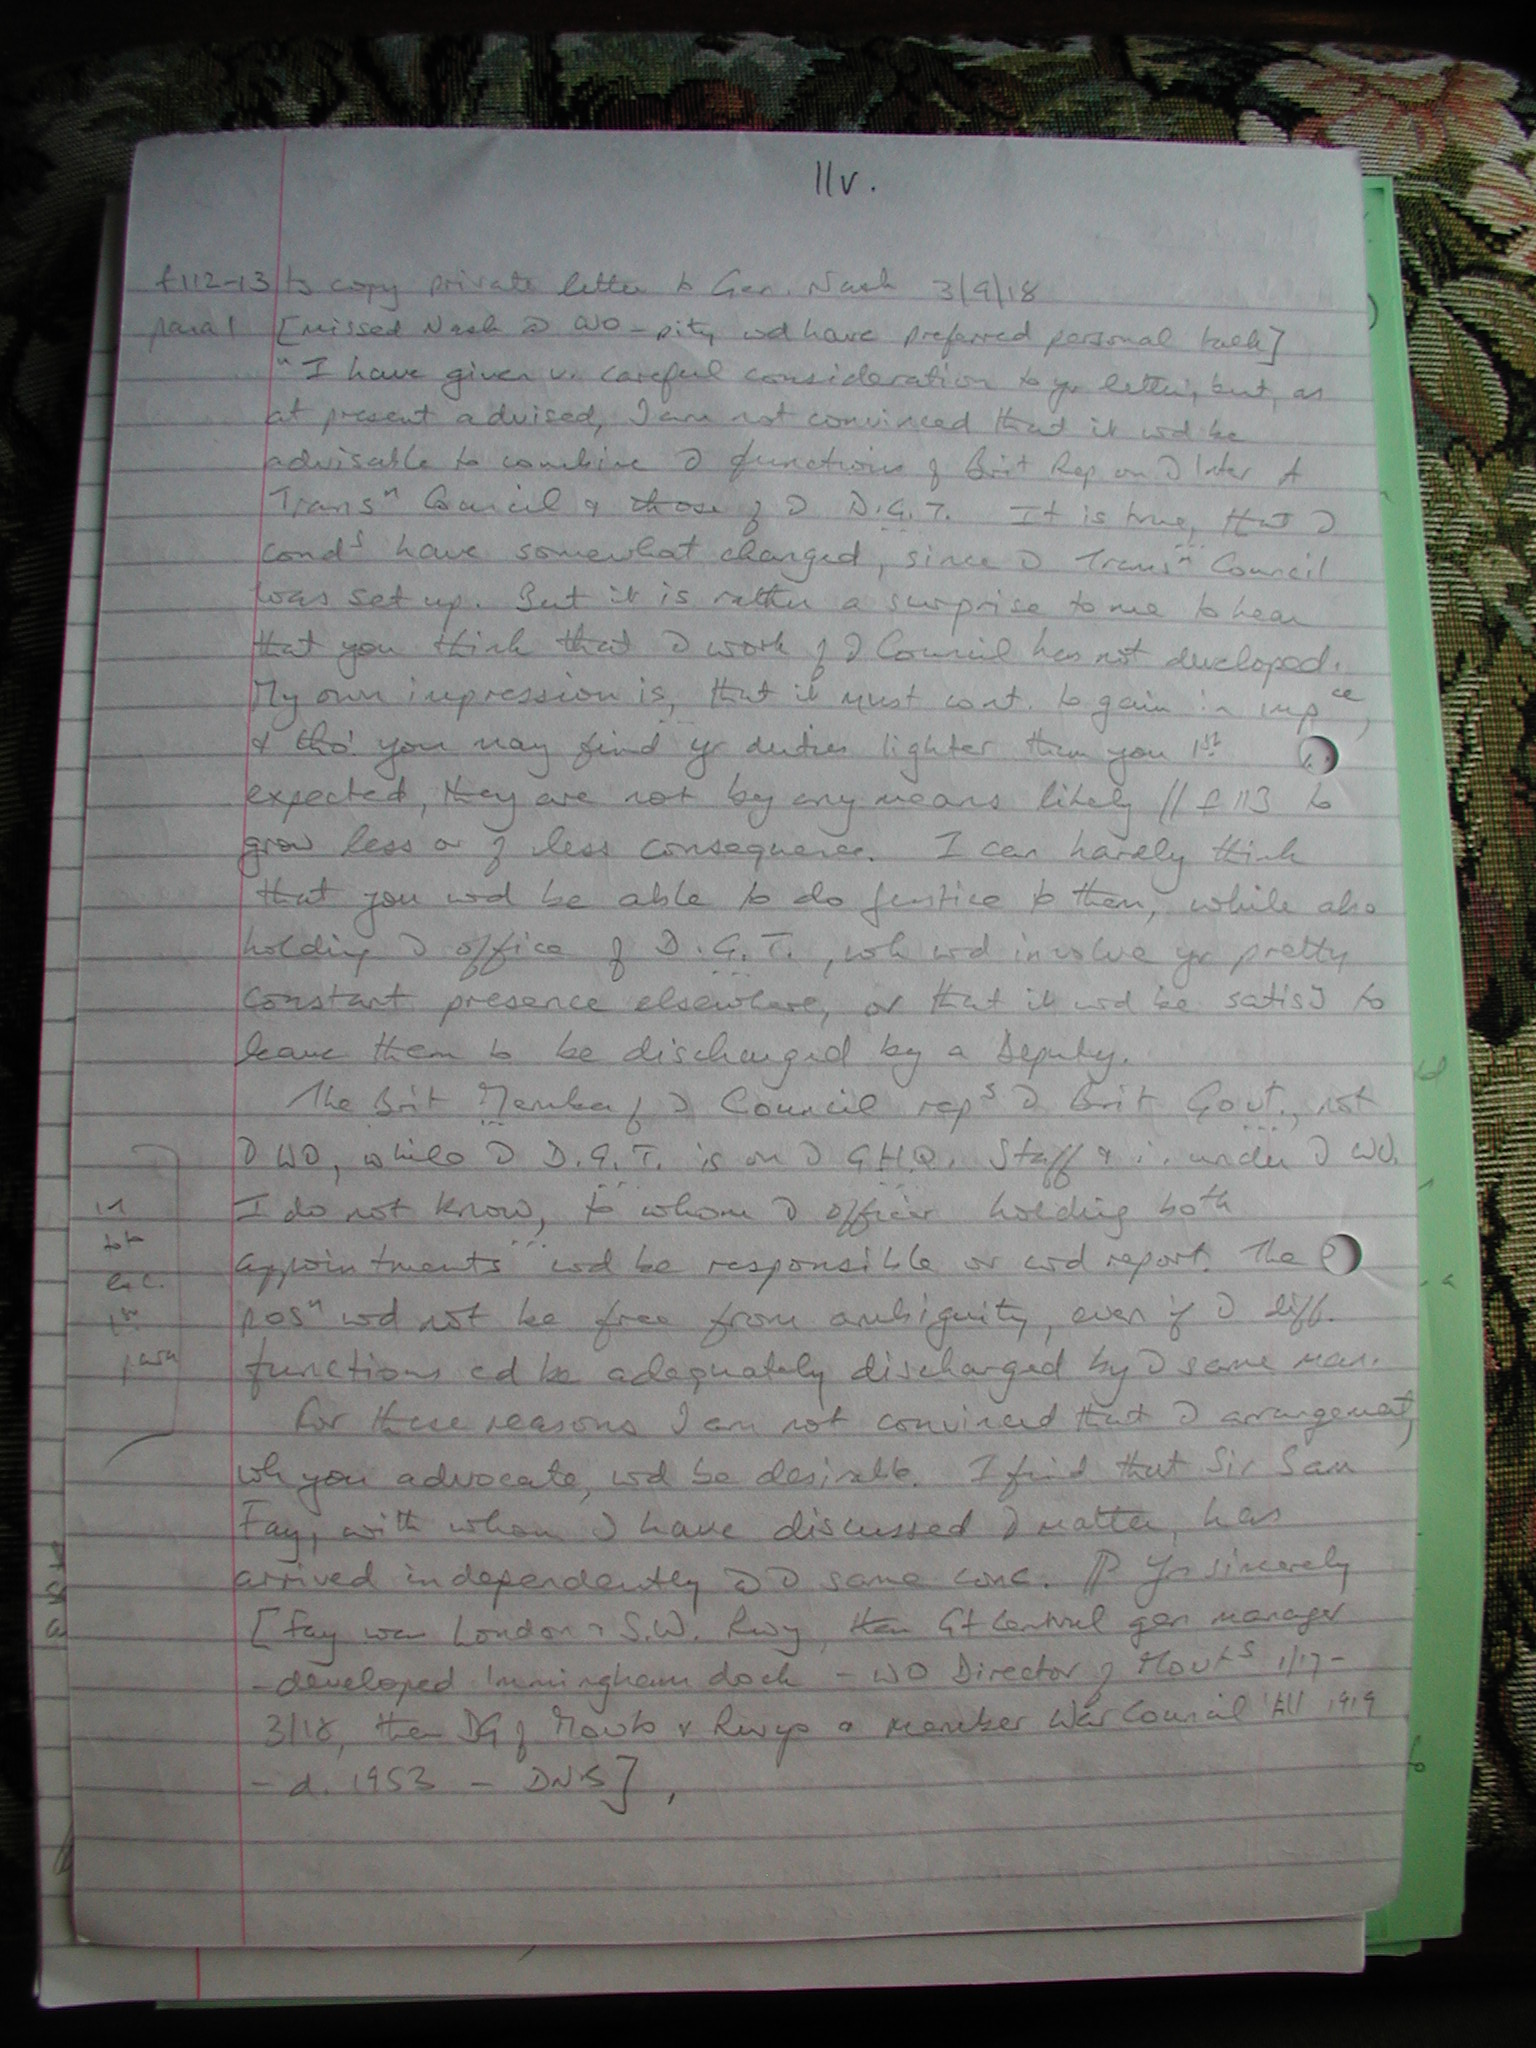 11v.
f112-13 ts copy private letter to Gen. Nash 3/9/18
para 1 [missed Nash @ WO - pity, wd have preferred personal talk]
"I have given v. careful consideration to yr letter, but, as
at present advised, I am not convinced that it wd be
advisable to combine D functions of Brit Rep on D Inter A
Transⁿ Council & those of D D.G.T. It is true, that D
condˢ have somewhat changed, since D Transⁿ Council
was set up. But it is rather a surprise to me to hear
that you think that D work of D Council has not developed.
My own impression is, that it must cont. to gain in impᶜᵉ,
& tho' you may find yr duties lighter than you 1st
expected, they are not by any means likely // f113 to
grow less or of less consequence. I can hardly think
that you wd be able to do justice to them, while also
holding D office of D.G.T., wh wd involve yr pretty
constant presence elsewhere, or that it wd be satisJ to
leave them to be discharged by a Deputy.
The Brit Member of D Council repˢ D Brit Govt., not
D WO, while D D.G.T. is on D G.H.Q. Staff & i. under D WO.
I do not know, to whom D officer holding both
appointments wd be responsible or wd report. The
posⁿ wd not be free from ambiguity, even if D diff.
functions cd be adequately discharged by D same man.
For these reasons I am not convinced that D arrangement,
wh you advocate, wd be desirable. I find that Sir Sam
Fay, with whom I have discussed D matter, has
arrived independently @ D same conc. P Yrs sincerely
[Fay was London & S.W. Rwy, then Gt Central gen manager
- developed Immingham dock - WO Director of Movtˢ 1/17-
3/18, then DG of Movts & Rwys & member War Council till 1919
- d. 1953 - DNB],
in
tot
exc.
1st
para